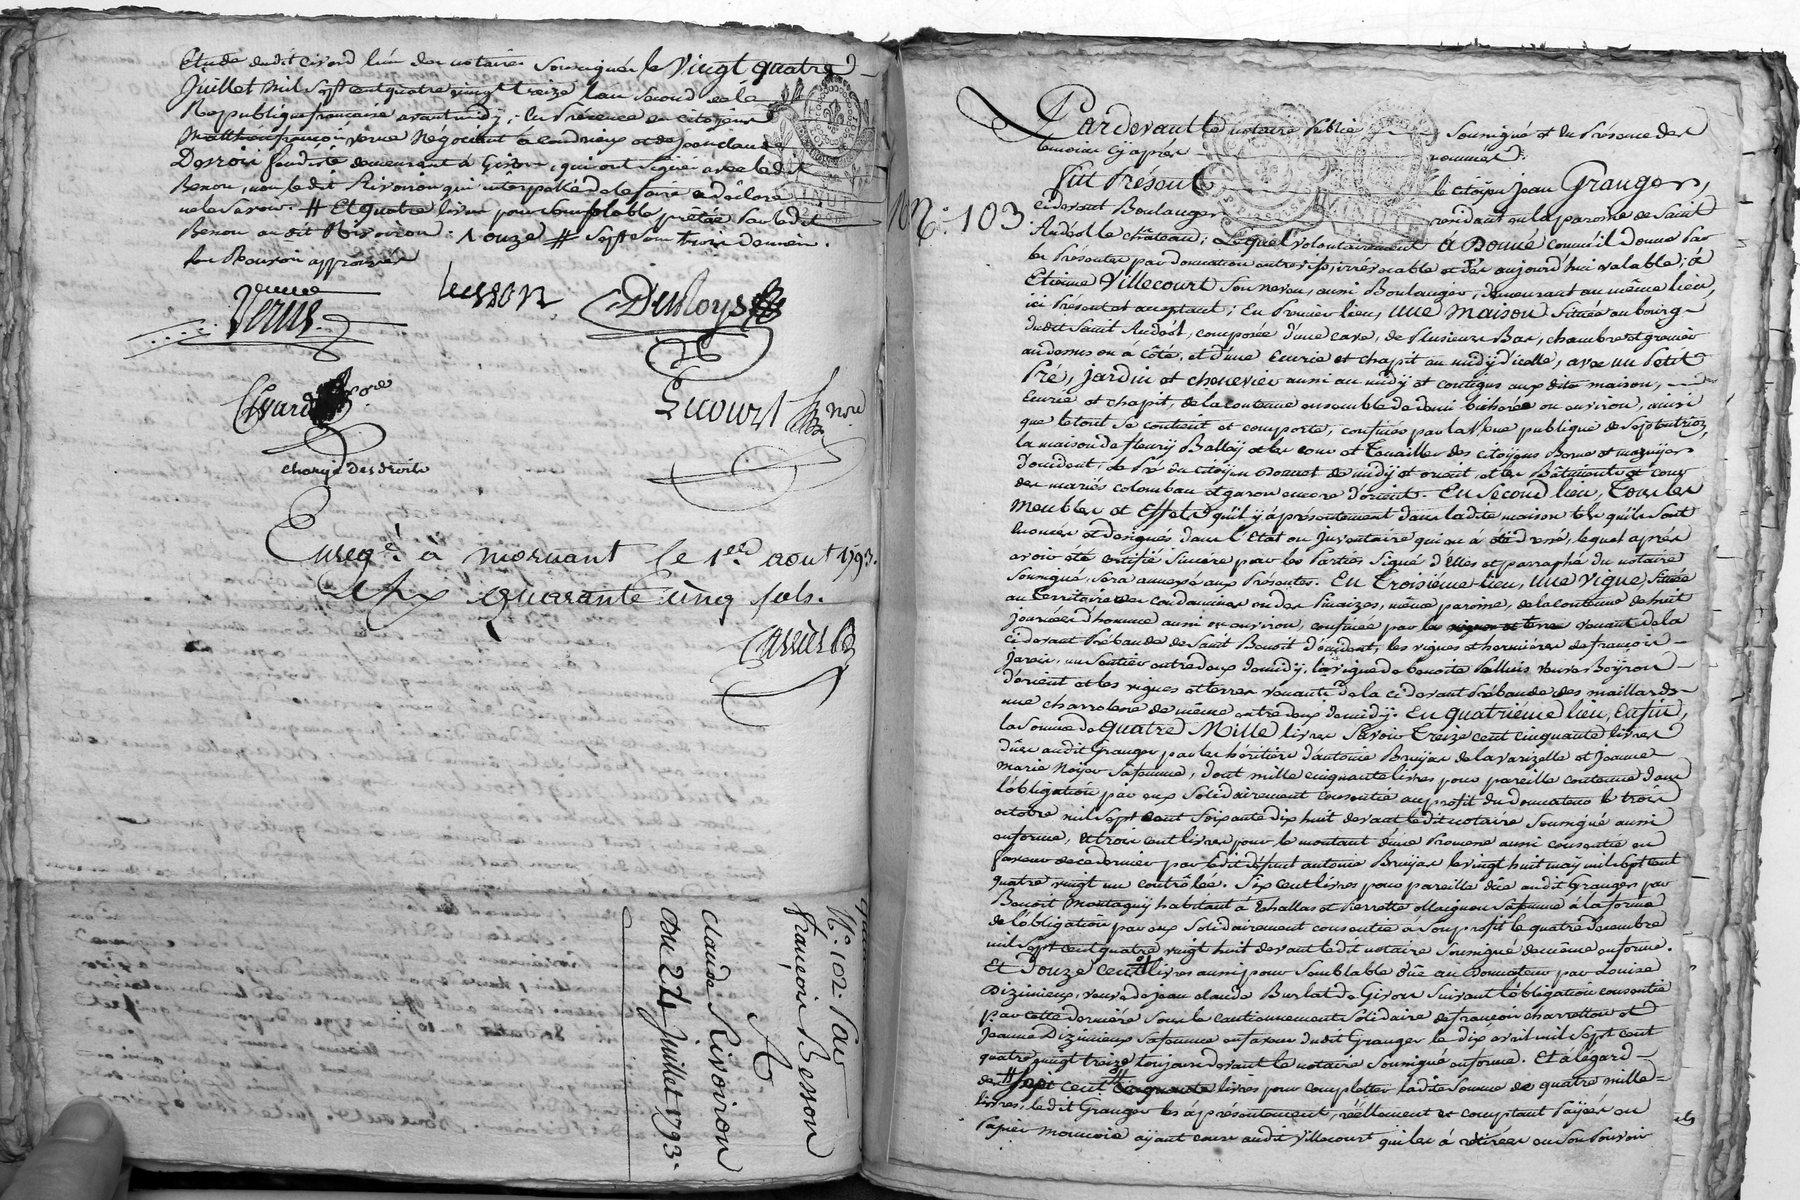 Etude dudit Givord l'un des notaires soussignés le Vingt quatre
Juillet mil sept cent quatre vingt treize l'an second de la
Republique française avant midy; En Présence des citoyens
françois verne Négociant à condrieux et de jean claude
demeurant à Givors, qui ont signé avec ledit
Besson, non ledit Rivoiron qui interpellé de le faire a déclaré
ne le savoir. # Et quatre livres pour semblable prêtée par ledit
Besson audit Rivoiron: # sept sous trois deniers.
approuvés
Verne
besson
chargé des droits
Enreg.é à mornant le 1.er aout 1793.
Quarante cinq sols.
N.º 102. Par
François Besson
A
Claude Rivoiron
Du 24 Juillet 1793.
N.º 103
Pardevant le notaire Public soussigné et En Présence des
temoins cy après nommés:
Fut Présent le citoyen Jean Granger,
cidevant Boulanger résidant en la paroisse de Saint
Andéol le château; Lequel volontairement à Donné comme il donne par
les Présentes par donnation entre vifs, irrévocable et dès aujourd'hui valable; à
Etienne Villecourt son neveu, aussi Boulanger, demeurant au même lieu,
ici Présent et acceptant; En Premier lieu, une maison située au bourg
dudit Saint Andéol, composée d'une cave, de Plusieurs Bas, chambres et greniers
au dessus ou à côté, et d'une Ecurie et chapit au midy d'icelle, avec un Petit
Pré, jardin et chenevier aussi au midy et contigus aux dits maison,
Ecurie et chapit, de la contenue ensemble de demi bicherée ou environ, ainsi
que le tout se contient et comporte, confinés par la Voue publique de septentrion,
la maison de fleury Balley et les cour et des citoyens Borne et
d'occident, le Pré du citoyen Donnet de midy et orient, et les Bâtiments et cour
des mariés colomban et garon encore d'orient. En second lieu, Tous les
Meubles et Effets qu'il y à présentement dans ladite maison tels qu'ils sont
énoncés et désignés dans l'Etat ou Inventaire qui en à été dressé, lequel après
avoir été certifié sincère par les Parties signé d'Elles et parraphé du notaire
soussigné, sera annexé aux Présentes. En Troisième lieu, une vigne située
au Territoire des condamines ou des même paroisse, de la contenue de huit
journées d'homme aussi ou environ, confinée par les venant de la
cidevant Prébande de Saint Benoit d'occident, les vignes et hermières de françois
Jaroir, un sentier entre deux de midy, la vigne de benoite Palluis veuve Boiron
d'orient et les vignes et terres venants de la cidevant Prébande des maillards
une charroliere de même entre deux de midy. En quatrième lieu, Enfin,
la somme de Quatre Mille livres savoir Treize cent cinquante livres
dûes audit Granger par les héritiers d'antoine Brujas de la varizelle et Jeanne
Marie Noyer sa femme, dont mille cinquante livres pour pareille contenue dans
l'obligation par eux solidairement consentie au profit du donnateur le trois
octobre mil sept cent soixante dix huit devant ledit notaire soussigné aussi
enforme, et trois cent livres pour le montant d'une Promesse aussi consentie en
faveur de ce dernier par ledit défunt antoine Brujas le vingt huit may mil sept cent
quatre vingt un contrôlée. Six cent livres pour pareille dûe audit Granger par
Benoit Montagny habitant à Echallas et Pierrette Maignon sa femme à la forme
de l'obligation par eux solidairement consentie à son profit le quatre décembre
mil sept cent quatre vingt huit devant ledit notaire soussigné de même enforme.
Et Douze cent livres aussi pour semblable dûe au Donnateur par Louise
Dizimieux, veuve de jean claude Burlat de Givors suivant l'obligation consentie
par cette dernière sous le cautionnement solidaire de françois charretton et
Jeanne Dizimieux sa femme en faveur dudit Granger le dix avril mil sept cent
quatre vingt treize toujours devant le notaire soussigné enforme. Et à l'égard
des # sept cent # cinquante livres pour completter ladite somme de quatre mille
livres, ledit Granger les à présentement, réellement et comptant payées en
Papier monnoie ayant cours audit Villecourt qui les à retirées en son pouvoir